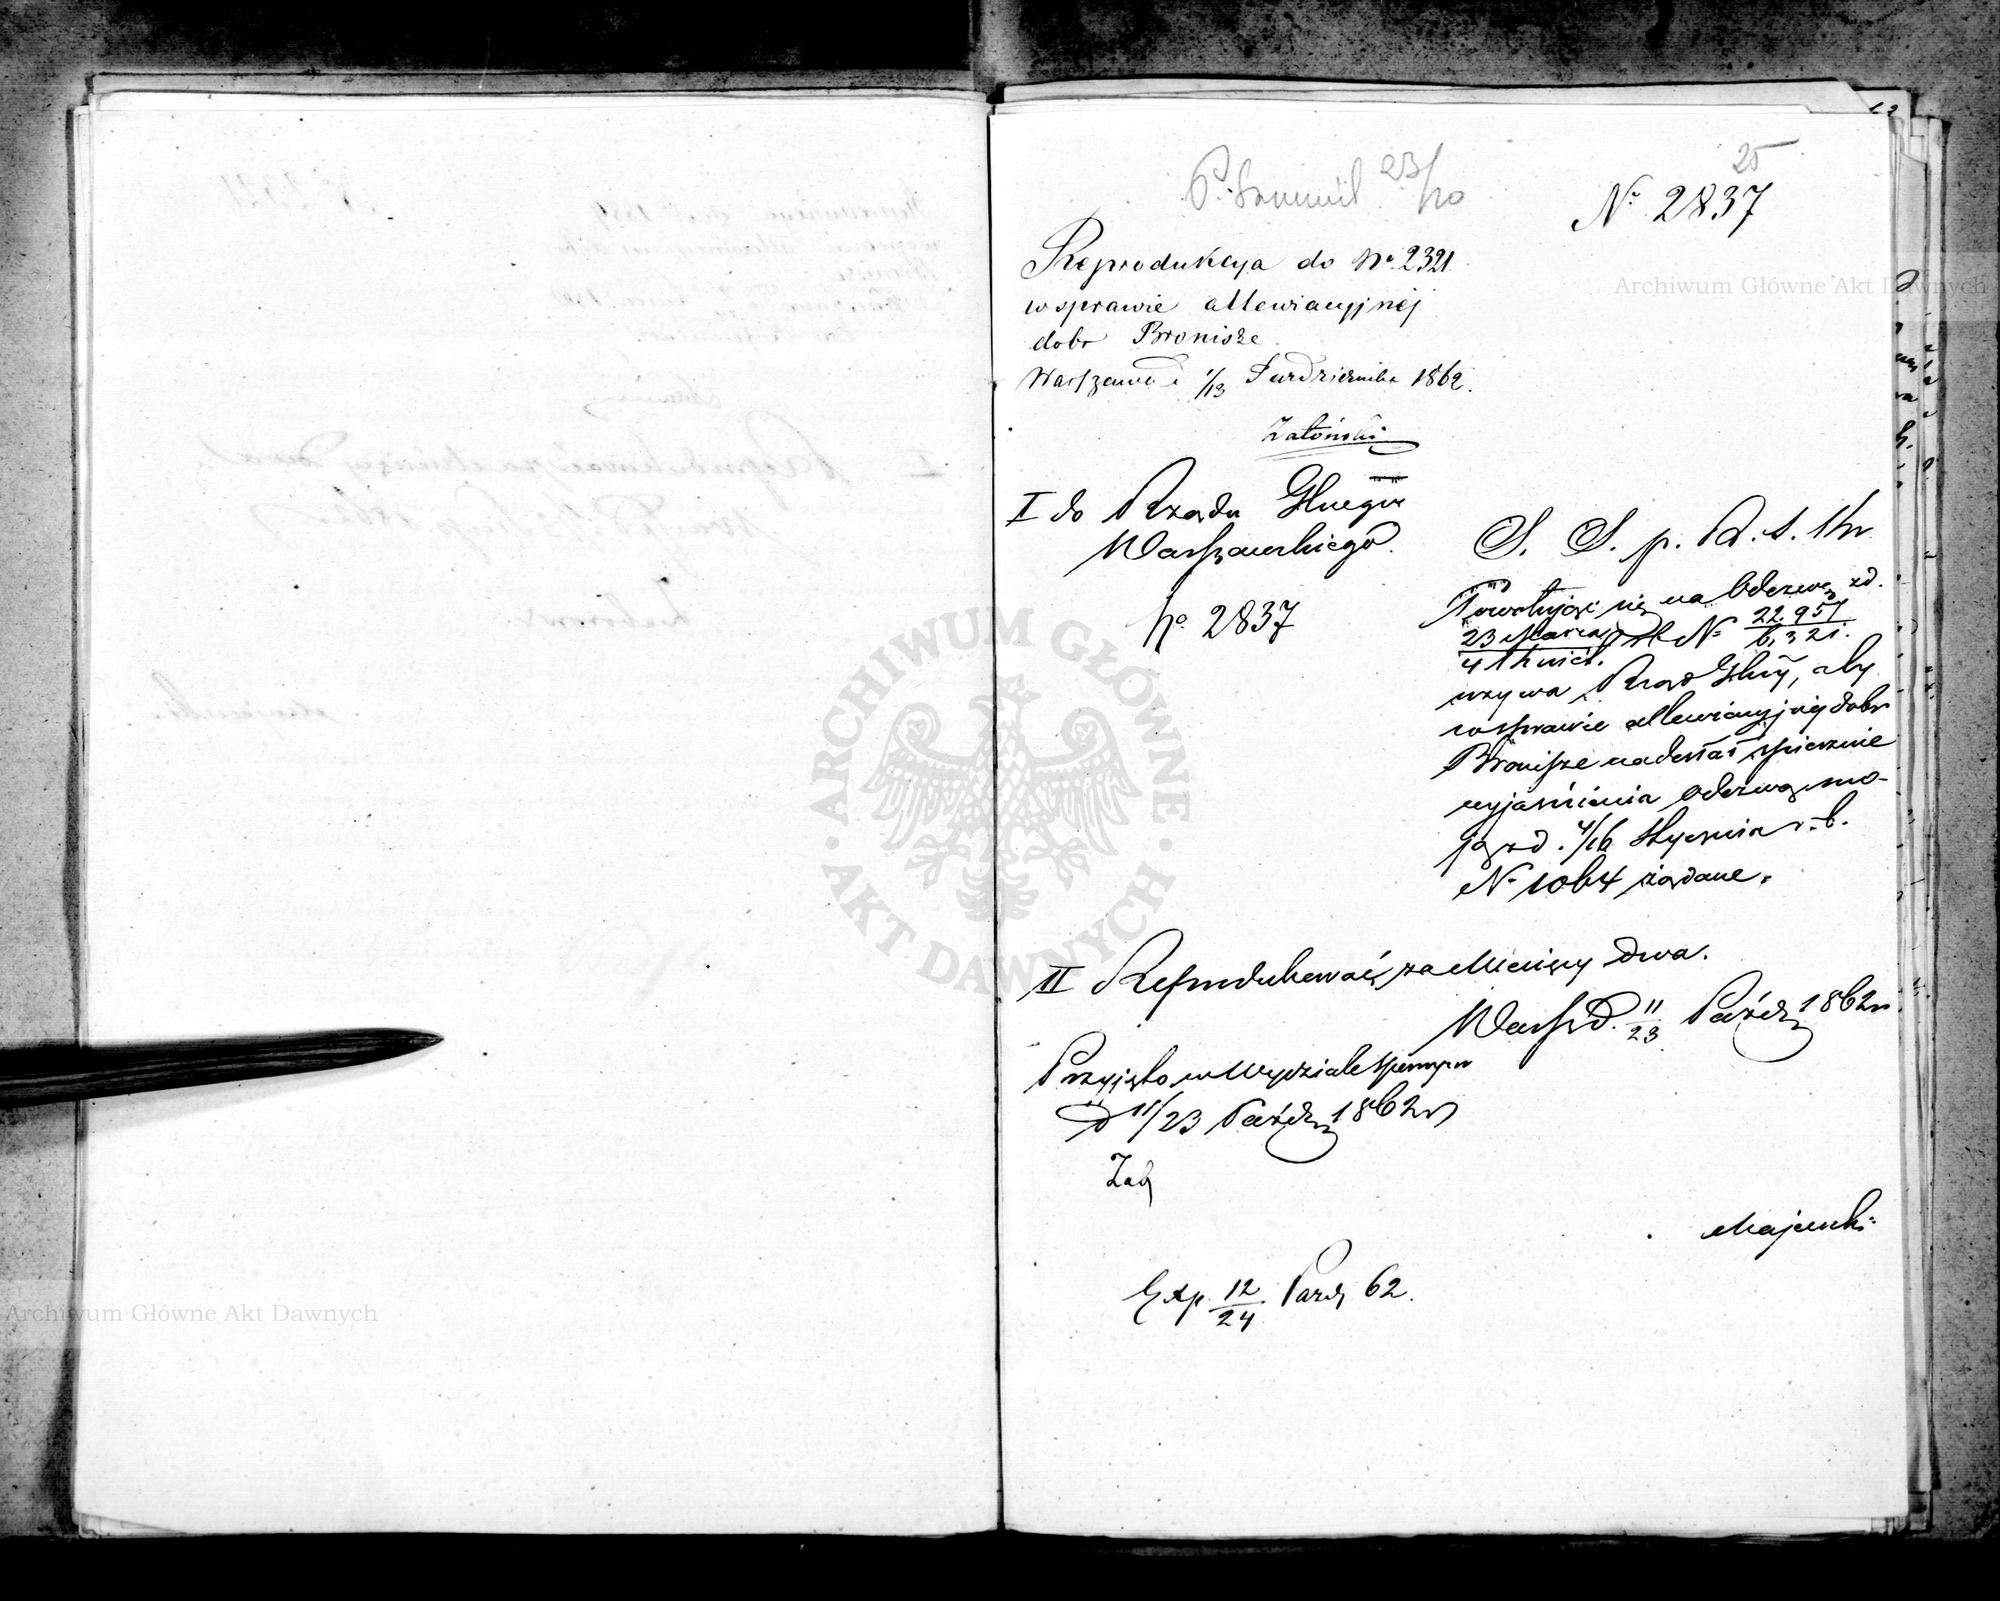 25
23/10
Nº 2837
Reprodukcya do Nº 2321
w sprawie allewiacyjnej
dobr Bronisze
Warszawa d 1/13 Października 1862.
Zatoński
I do Rządu Głuego
Warszawskiego.
Nº 2837
S. S. p. R. S.
Powołując się na Odezwę z d.
23 Marca / 4 Kwiet. r b Nº 22,957 / 6,321.
wzywa Rząd Głny, aby
w sprawie allewiacyjnej dobr
Bronisze nadesłał spiesznie
wyjaśnienia odezwą mo-
ją z d. 4/16 Stycznia r. b.
Nº 1064 żądane.
II Reprodukować za Miesięcy dwa.
Warsz d. 11/23 Paźdz 1862 r
Przyjęto w Wydziale
d 11/23 Paźdz 1862 r
Zab
Majewski
Exp. 12/24 Pazdz 62.
Archiwum Główne Akt Dawnych
ARCHIWUM GŁÓWNE · AKT DAWNYCH ·
Archiwum Główne Akt Dawnych